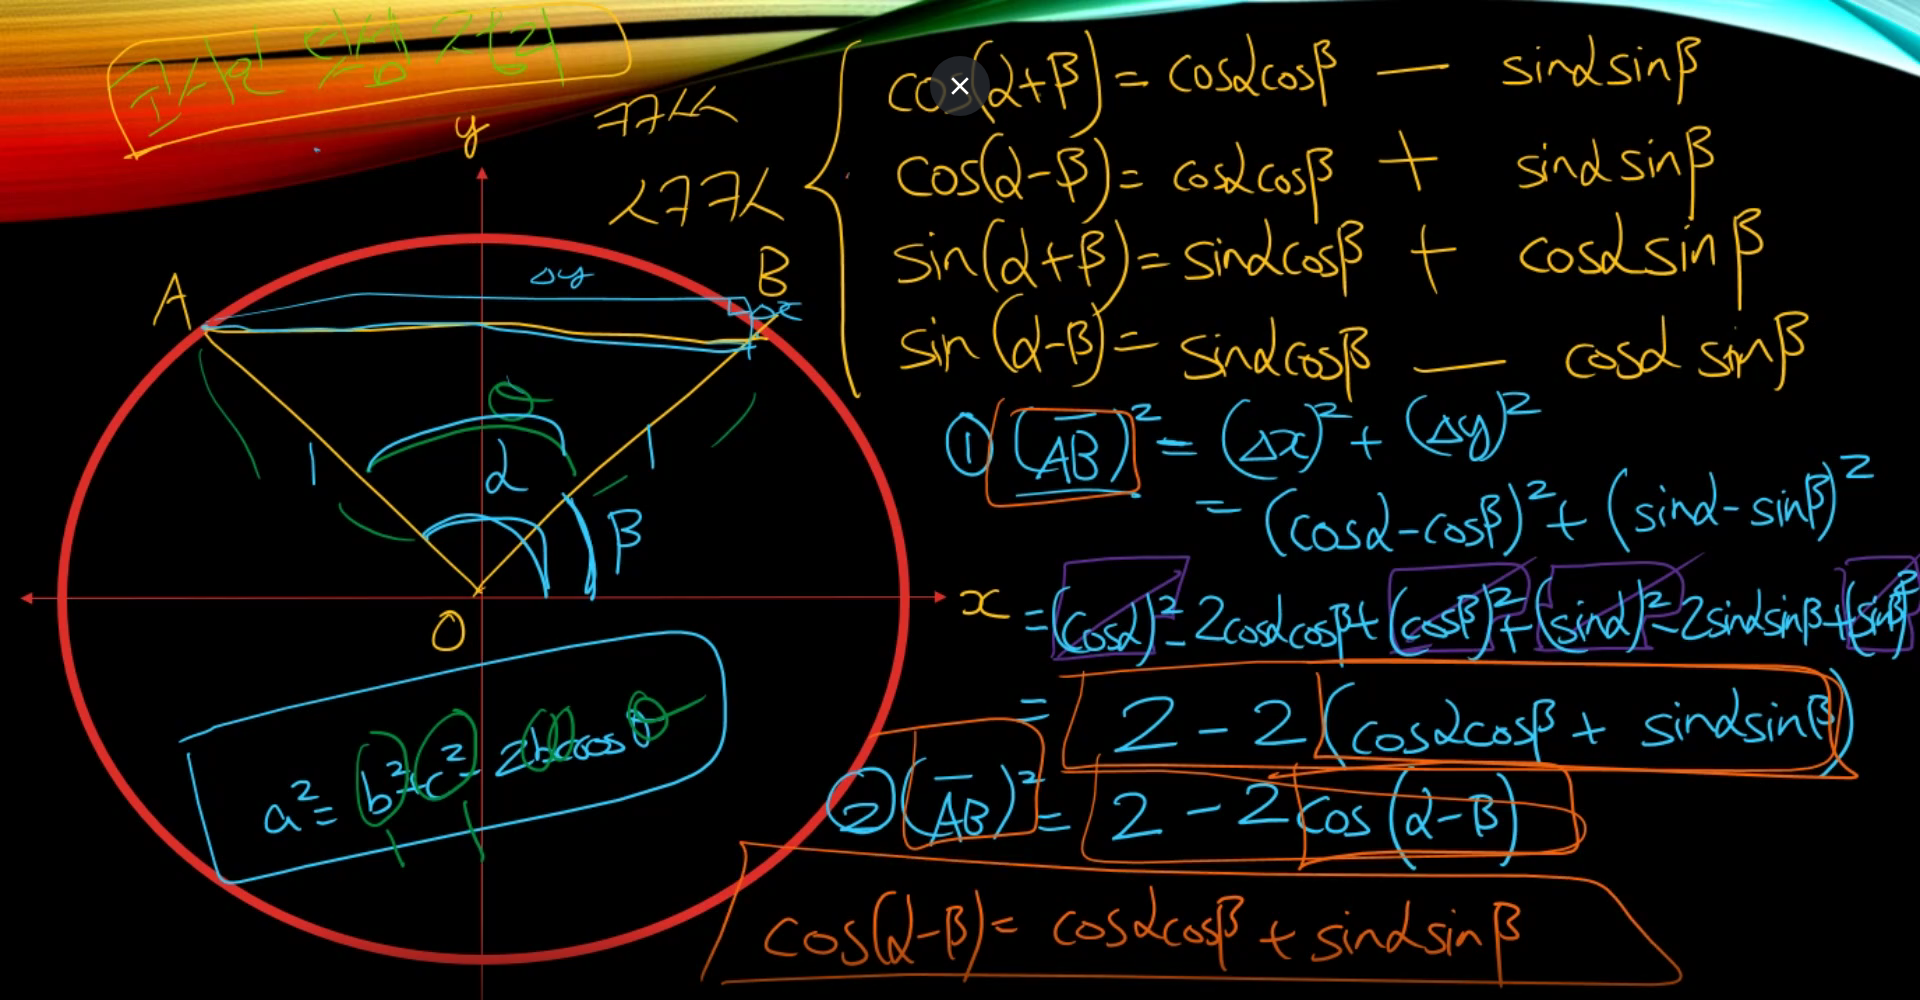 cos(α+β) = cosαcosβ − sinαsinβ
cos(α−β) = cosαcosβ + sinαsinβ
sin(α+β) = sinαcosβ + cosαsinβ
sin(α−β) = sinαcosβ − cosαsinβ
y
A
Δy
B
Δx
θ
1
α
1
β
O
x
① (AB̅)² = (Δx)² + (Δy)²
= (cosα−cosβ)² + (sinα−sinβ)²
= (cosα)² − 2cosαcosβ + (cosβ)² + (sinα)² − 2sinαsinβ + (sinβ)²
= 2 − 2(cosαcosβ + sinαsinβ)
a² = b² + c² − 2bccosθ
1 1
② (AB̅)² = 2 − 2cos(α−β)
cos(α−β) = cosαcosβ + sinαsinβ